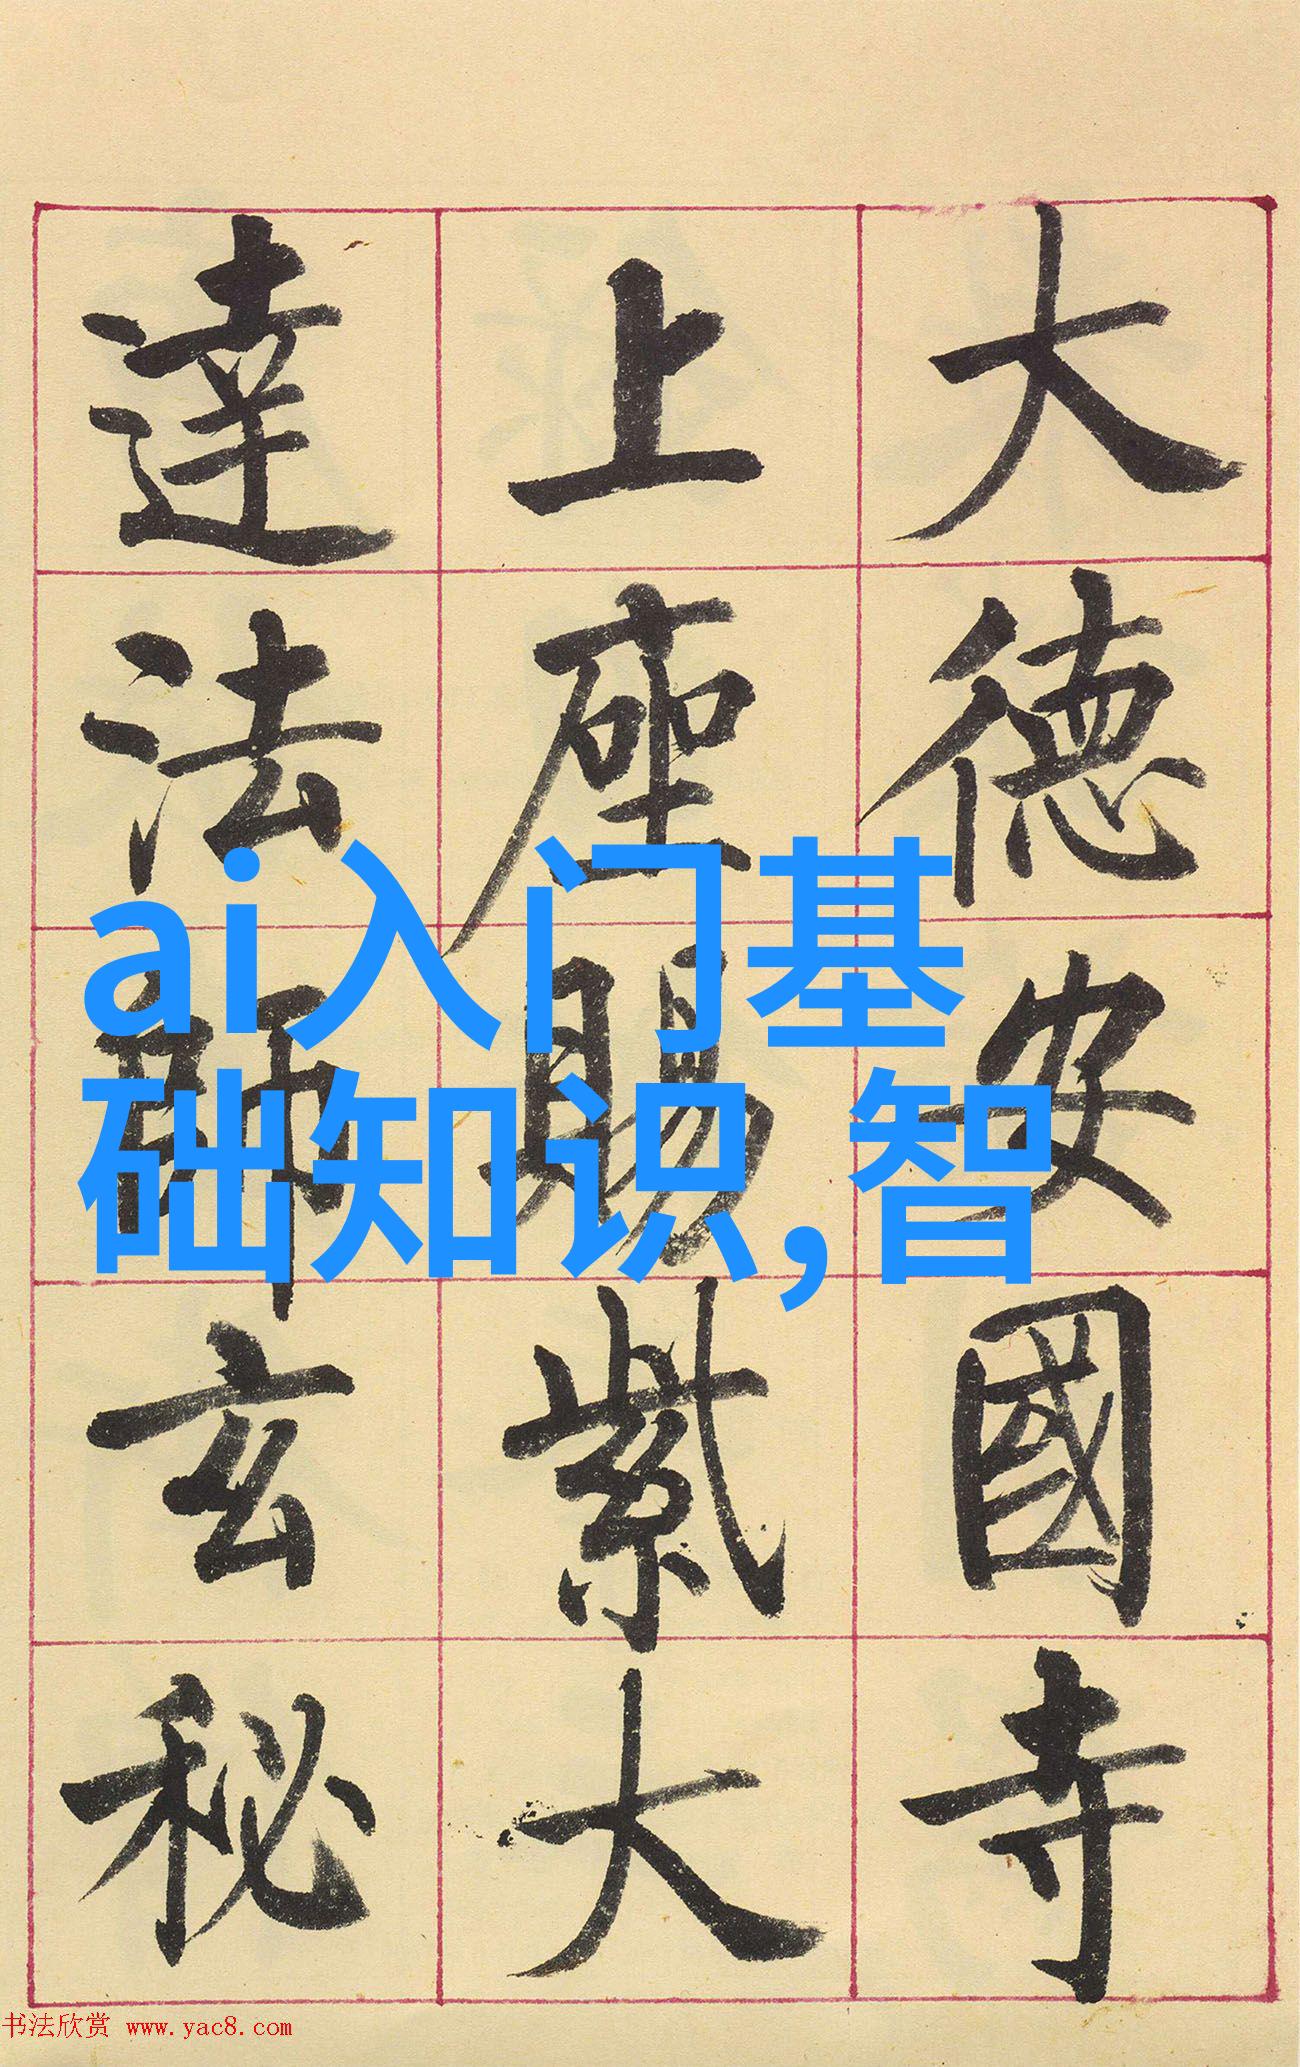 大德安國寺
上座賜紫大
達法師玄秘
ai入门基
础知识,智
书法欣赏 www.yac8.com